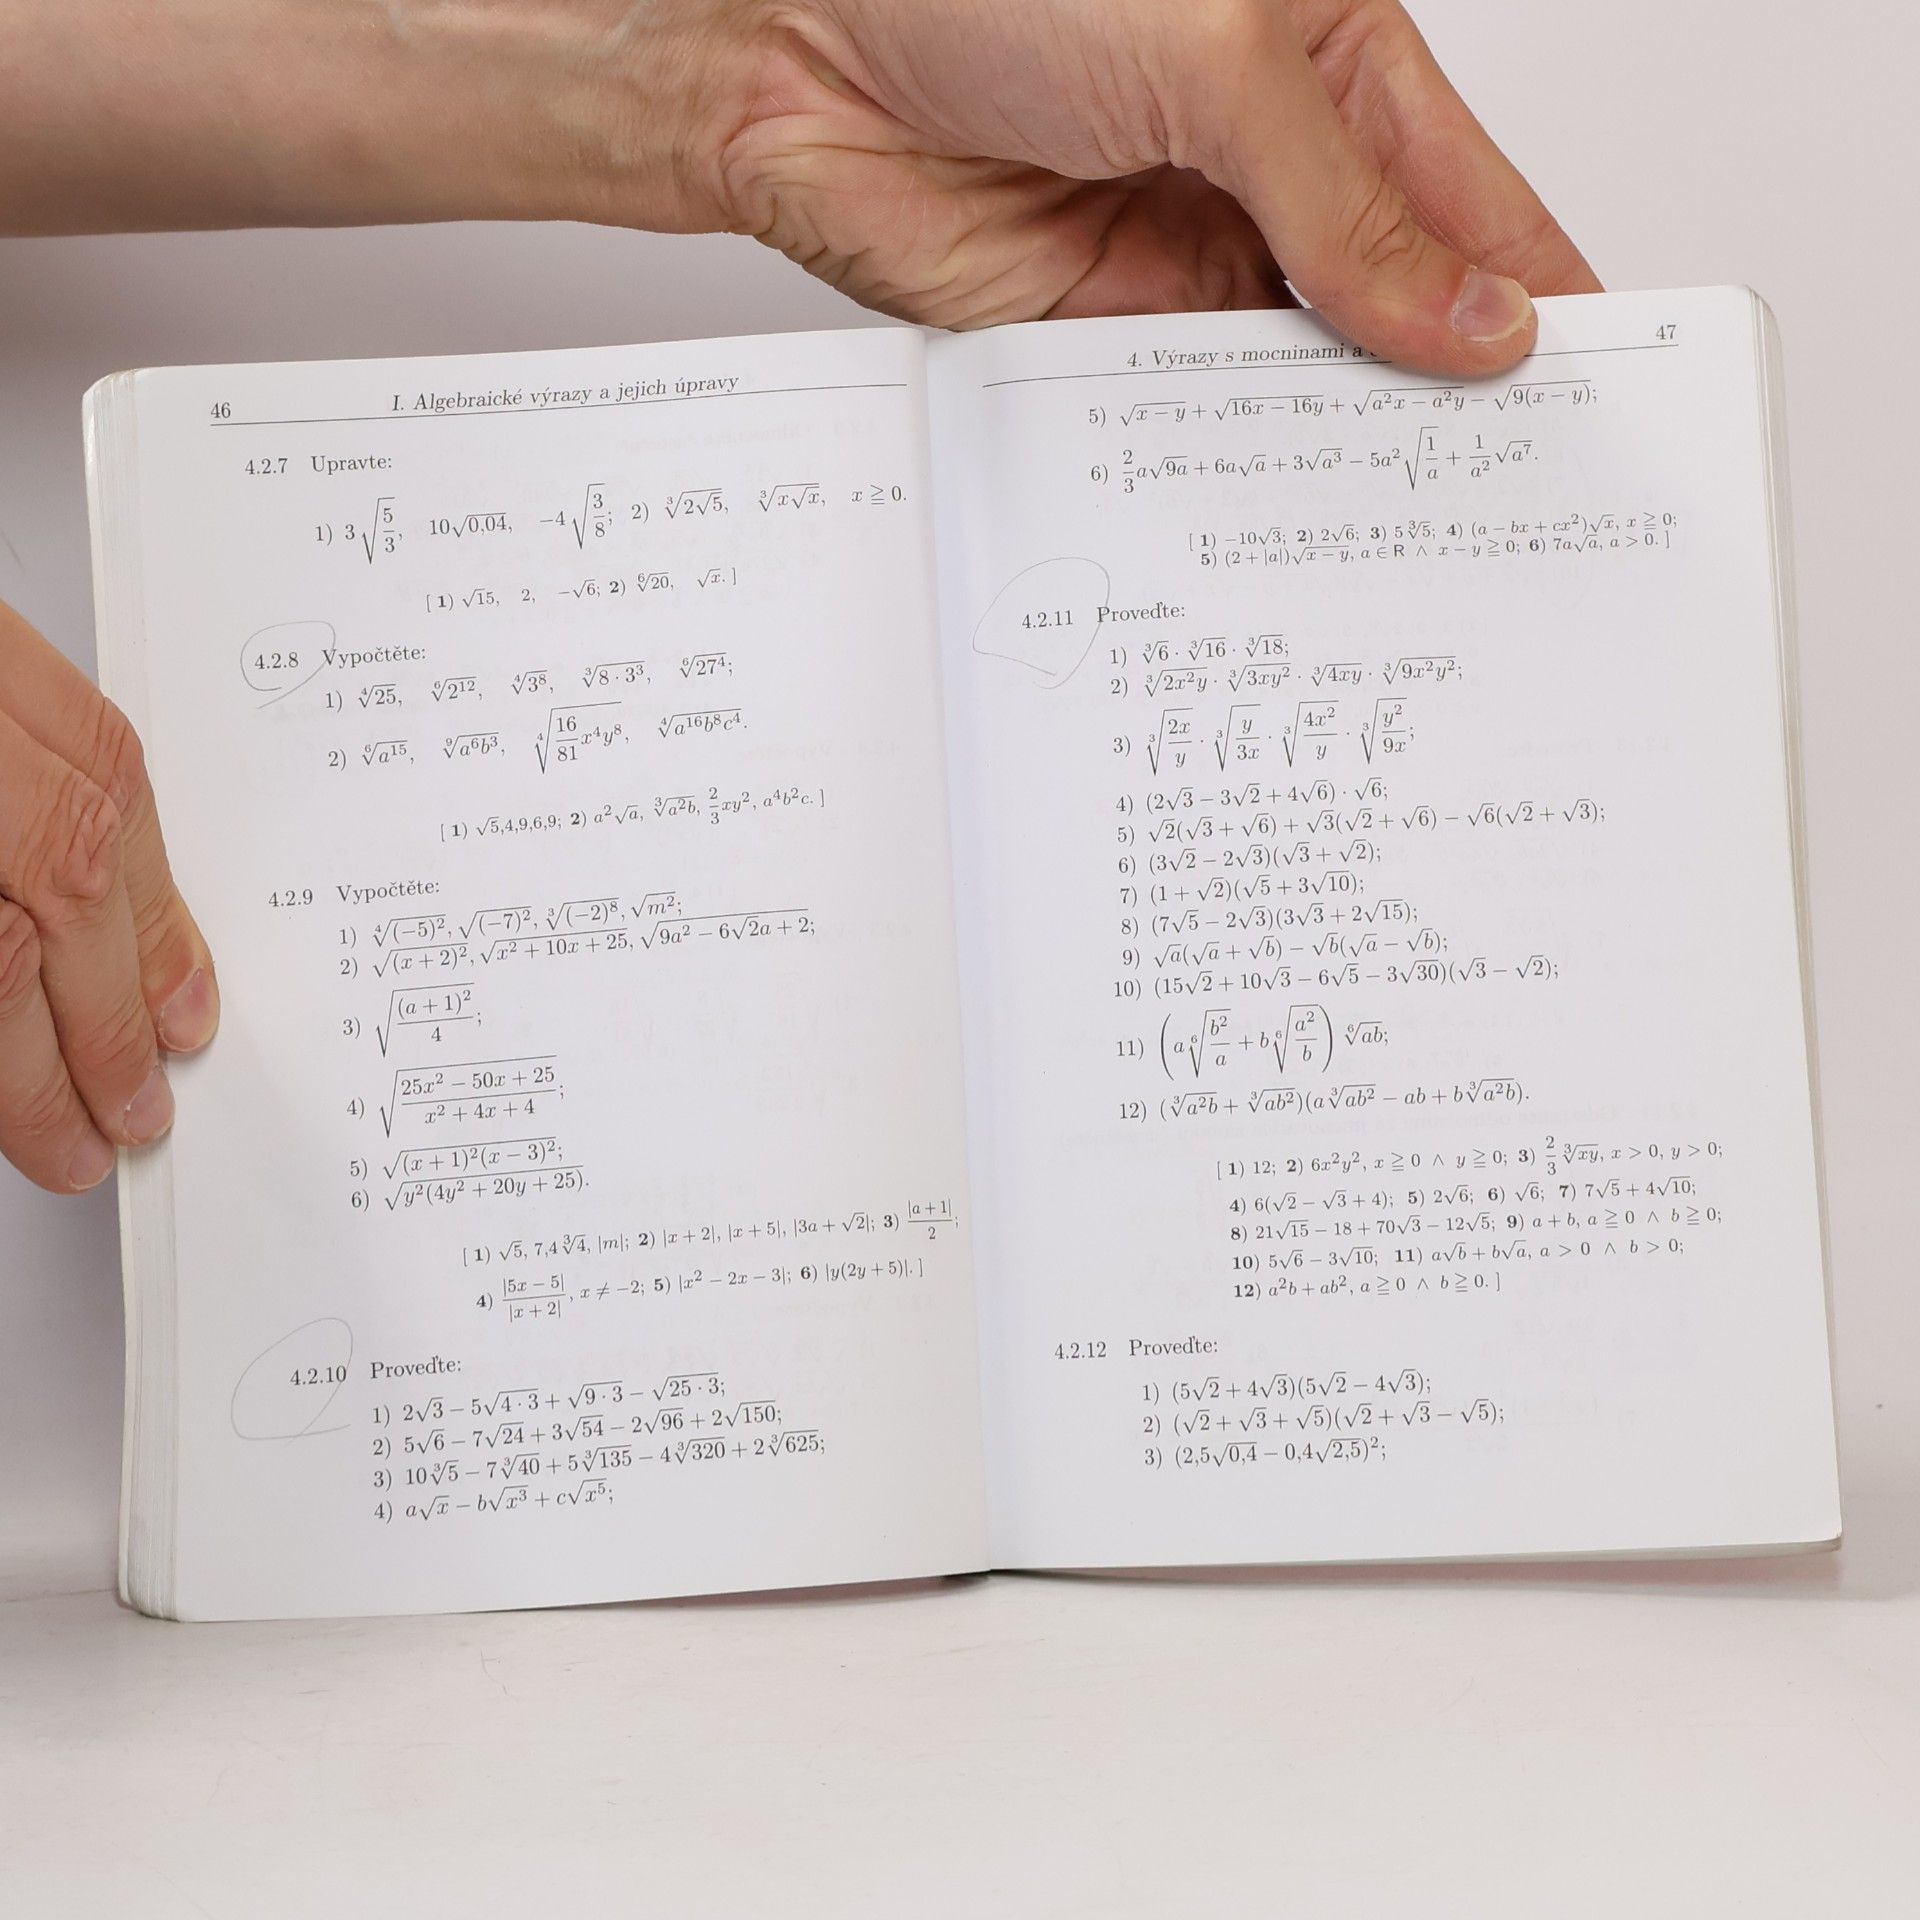 46 I. Algebraické výrazy a jejich úpravy
4.2.7 Upravte:
1) 3√(5/3), 10√0,04, −4√(3/8); 2) ∛(2√5), ∛(x√x), x ≧ 0.
[ 1) √15, 2, −√6; 2) ⁶√20, √x. ]
4.2.8 Vypočtěte:
1) ⁴√25, ⁶√2¹², ⁴√3⁸, ∛(8 · 3³), ⁶√27⁴;
2) ⁶√a¹⁵, ⁹√(a⁶b³), ⁴√(16/81 x⁴y⁸), ⁴√(a¹⁶b⁸c⁴).
[ 1) √5,4,9,6,9; 2) a²√a, ∛(a²b), 2/3 xy², a⁴b²c. ]
4.2.9 Vypočtěte:
1) ⁴√(−5)², √(−7)², ∛(−2)⁸, √m²;
2) √(x + 2)², √(x² + 10x + 25), √(9a² − 6√2a + 2);
3) √((a + 1)²/4);
4) √((25x² − 50x + 25)/(x² + 4x + 4));
5) √((x + 1)²(x − 3)²);
6) √(y²(4y² + 20y + 25)).
[ 1) √5, 7,4∛4, |m|; 2) |x + 2|, |x + 5|, |3a + √2|; 3) |a + 1|/2;
4) |5x − 5|/|x + 2|, x ≠ −2; 5) |x² − 2x − 3|; 6) |y(2y + 5)|. ]
4.2.10 Proveďte:
1) 2√3 − 5√(4 · 3) + √(9 · 3) − √(25 · 3);
2) 5√6 − 7√24 + 3√54 − 2√96 + 2√150;
3) 10∛5 − 7∛40 + 5∛135 − 4∛320 + 2∛625;
4) a√x − b√x³ + c√x⁵;
4. Výrazy s mocninami a 47
5) √(x − y) + √(16x − 16y) + √(a²x − a²y) − √(9(x − y));
6) 2/3 a√(9a) + 6a√a + 3√a³ − 5a²√(1/a) + 1/a² √a⁷.
[ 1) −10√3; 2) 2√6; 3) 5∛5; 4) (a − bx + cx²)√x, x ≧ 0;
5) (2 + |a|)√(x − y), a ∈ R ∧ x − y ≧ 0; 6) 7a√a, a > 0. ]
4.2.11 Proveďte:
1) ∛6 · ∛16 · ∛18;
2) ∛(2x²y) · ∛(3xy²) · ∛(4xy) · ∛(9x²y²);
3) ∛(2x/y) · ∛(y/3x) · ∛(4x²/y) · ∛(y²/9x);
4) (2√3 − 3√2 + 4√6) · √6;
5) √2(√3 + √6) + √3(√2 + √6) − √6(√2 + √3);
6) (3√2 − 2√3)(√3 + √2);
7) (1 + √2)(√5 + 3√10);
8) (7√5 − 2√3)(3√3 + 2√15);
9) √a(√a + √b) − √b(√a − √b);
10) (15√2 + 10√3 − 6√5 − 3√30)(√3 − √2);
11) (a ⁶√(b²/a) + b ⁶√(a²/b)) ⁶√(ab);
12) (∛(a²b) + ∛(ab²))(a∛(ab²) − ab + b∛(a²b)).
[ 1) 12; 2) 6x²y², x ≧ 0 ∧ y ≧ 0; 3) 2/3 ∛(xy), x > 0, y > 0;
4) 6(√2 − √3 + 4); 5) 2√6; 6) √6; 7) 7√5 + 4√10;
8) 21√15 − 18 + 70√3 − 12√5; 9) a + b, a ≧ 0 ∧ b ≧ 0;
10) 5√6 − 3√10; 11) a√b + b√a, a > 0 ∧ b > 0;
12) a²b + ab², a ≧ 0 ∧ b ≧ 0. ]
4.2.12 Proveďte:
1) (5√2 + 4√3)(5√2 − 4√3);
2) (√2 + √3 + √5)(√2 + √3 − √5);
3) (2,5√0,4 − 0,4√2,5)²;